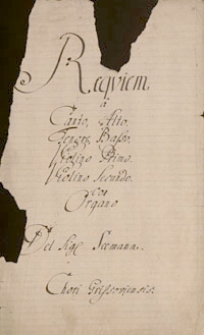 Requiem.
à
Canto, Alto.
Tenore, Basso.
Violino Primo.
Violino Secundo.
Con
Organo
Del Sigre Seemann.
Chori Grissoviensis.